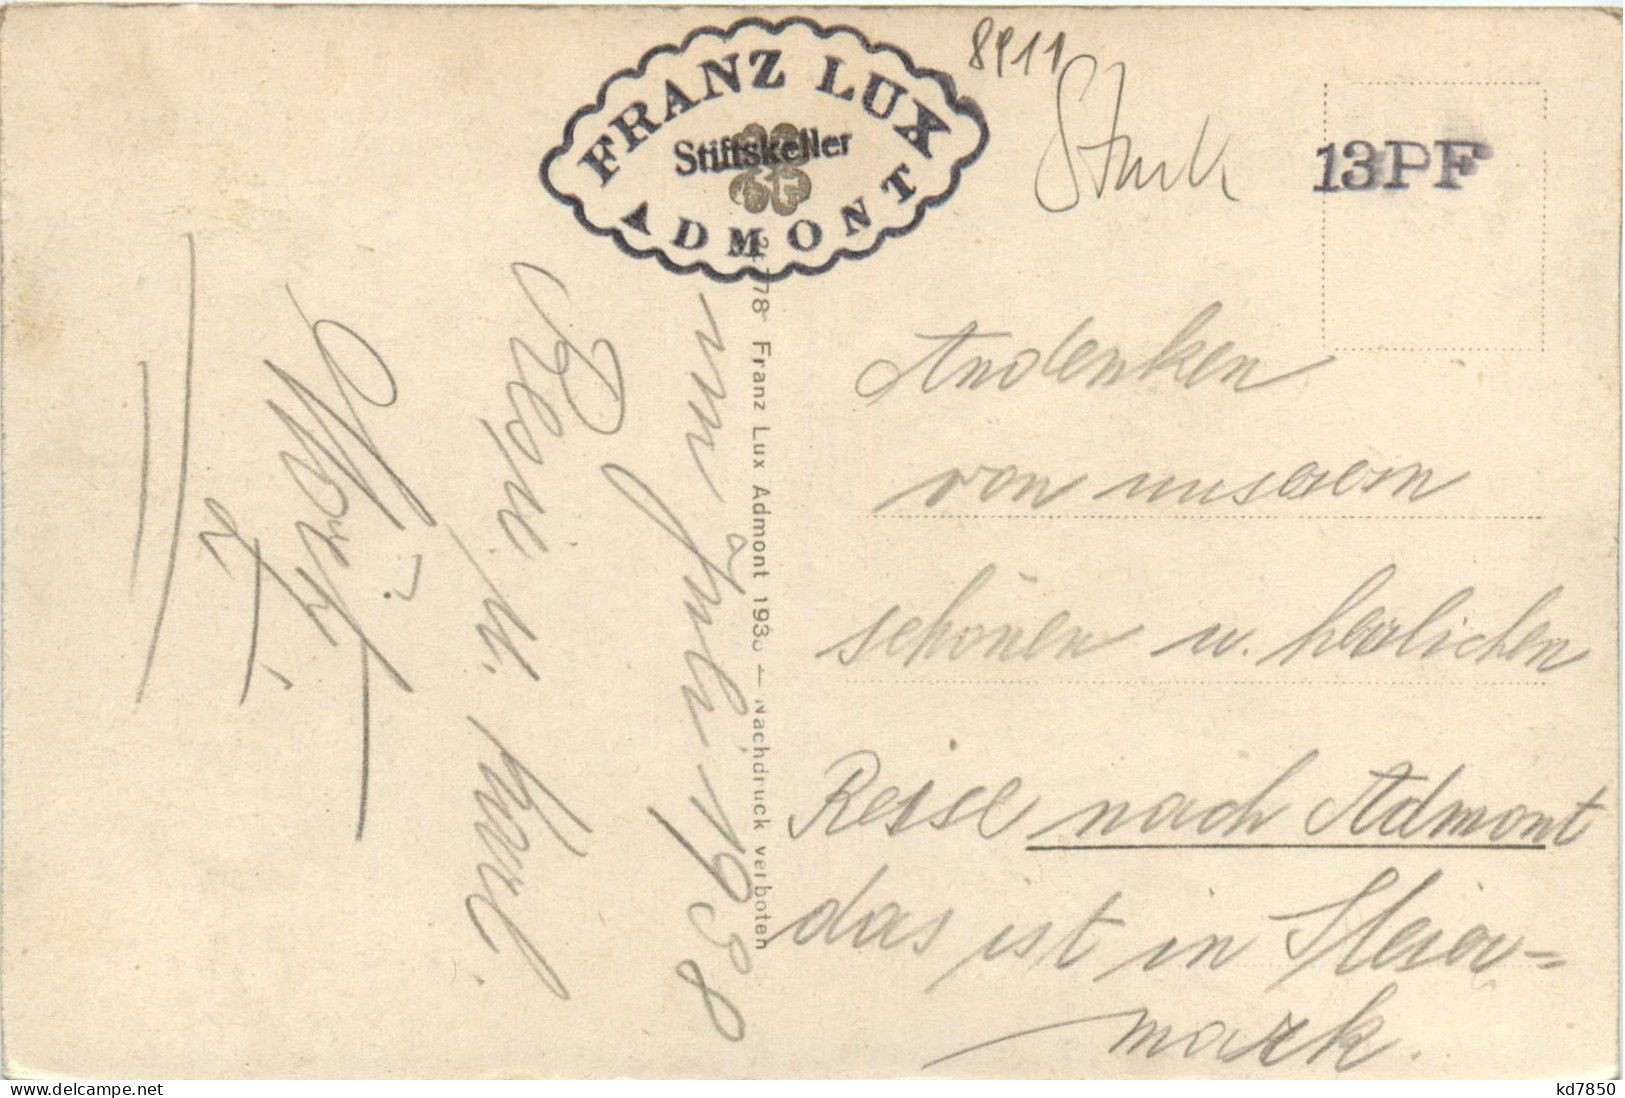 FRANZ LUX
Stiftskeller
ADMONT
8911
13PF
Andenken
von unserem
schönen u. herrlichen
Reise nach Admont
das ist in Steier=
mark.
78 Franz Lux Admont 193 — Nachdruck verboten
im Juli 1938
Resi u. Karl
delcampe.net
kd7850